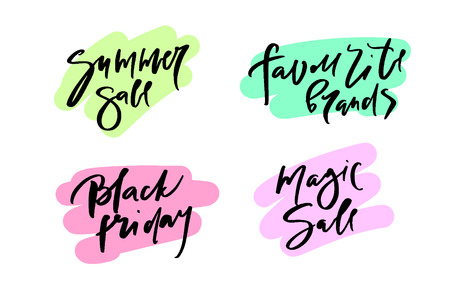 Summer
Sale
favourite
brands
Black
friday
Magic
Sale